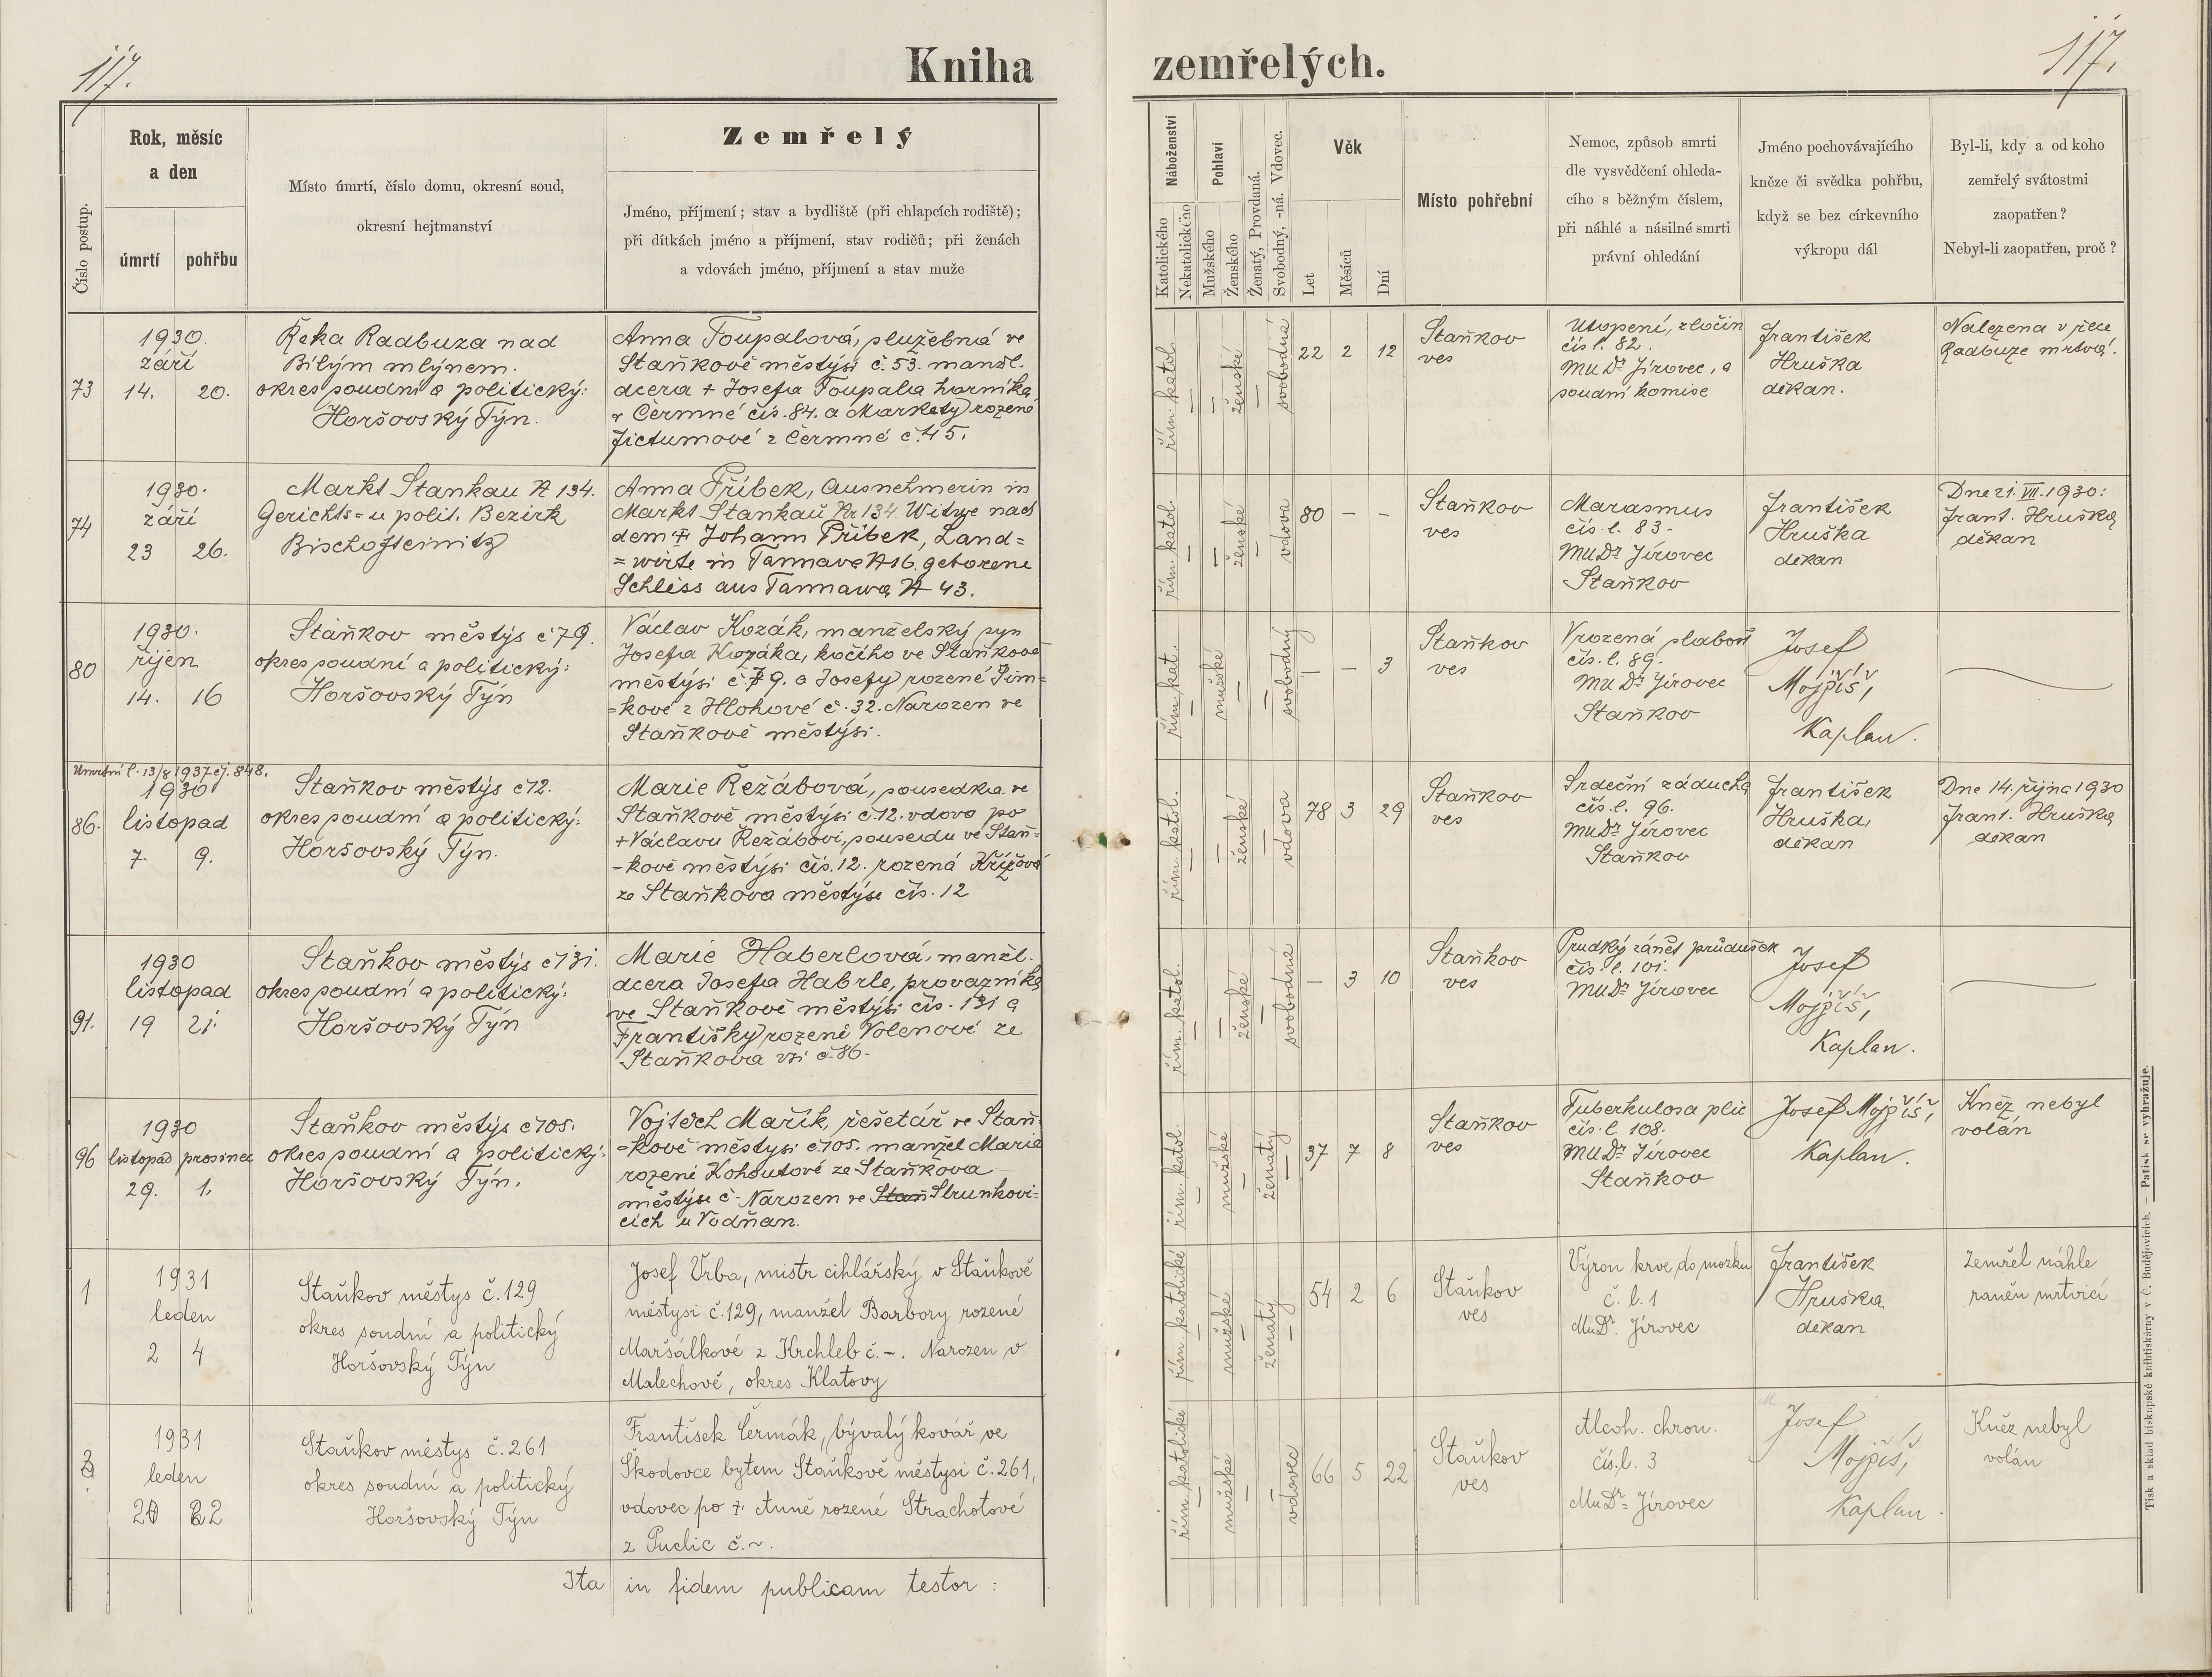 117.
Kniha zemřelých.
117.
Číslo postup.
Rok, měsíc
a den
úmrtí
pohřbu
Místo úmrtí, číslo domu, okresní soud,
okresní hejtmanství
Zemřelý
Jméno, příjmení; stav a bydliště (při chlapcích rodiště);
při dítkách jméno a příjmení, stav rodičů; při ženách
a vdovách jméno, příjmení a stav muže
Náboženství
Katolického
Nekatolického
Pohlaví
Mužského
Ženského
Ženatý, Provdaná.
Svobodný, -ná. Vdovec.
Věk
Let
Měsíců
Dní
Místo pohřební
Nemoc, způsob smrti
dle vysvědčení ohleda-
cího s běžným číslem,
při náhlé a násilné smrti
právní ohledání
Jméno pochovávajícího
kněze či svědka pohřbu,
když se bez církevního
výkropu dál
Byl-li, kdy a od koho
zemřelý svátostmi
zaopatřen?
Nebyl-li zaopatřen, proč?
73
1930.
září
14. 20.
Řeka Radbuza nad
Bílým mlýnem.
okres soudní a politický:
Horšovský Týn.
Anna Toupalová, služebná ve
Staňkově městysi č. 53. manžl.
dcera + Josefa Toupala horníka
v Čermné čís. 84. a Markety rozené
Fictumové z Čermné č. 45.
řím. katol.
–
–
ženské
–
svobodná
22 2 12
Staňkov
ves
Utopení, zločin
čís l. 82.
MUDr Jírovec, a
soudní komise
František
Hruška
děkan.
Nalezena v řece
Radbuze mrtvá.
74
1930.
září
23 26.
Markt Stankau N 134.
Gerichts= u polit. Bezirk
Bischofteinitz
Anna Příbek, Ausnehmerin in
Markt Stankau Nr 134. Witwe nach
dem + Johann Příbek, Land=
=wirte in Tannawa N 16. geborene
Schliss aus Tannawa N 43.
řím. katol.
–
–
ženské
–
vdova
80 – –
Staňkov
ves
Marasmus
čís. l. 83-
MUDr Jírovec
Staňkov
František
Hruška
děkan
Dne 21. VII. 1930:
Frant. Hruška
děkan
80
1930.
říjen
14. 16
Staňkov městys č 79.
okres soudní a politický:
Horšovský Týn
Václav Kozák, manželský syn
Josefa Kozáka, kočího ve Staňkově
městysi č. 79. a Josefy rozené Šim=
=kové z Hlohové č. 32. Narozen ve
Staňkově městysi.
řím. kat.
–
mužské
–
–
svobodný
– – 3
Staňkov
ves
Vrozená slabost
čís. l. 89.
MUDr Jírovec
Staňkov
Josef
Mojpíš,
Kaplan.
86.
Úmrtní l. 13/8 1937 čj. 848.
1930
listopad
7. 9.
Staňkov městys č 12.
okres soudní a politický:
Horšovský Týn.
Marie Řežábová, sousedka ve
Staňkově městysi č. 12. vdova po
+ Václavu Řežábovi, sousedu ve Staň=
-kově městysi čís. 12. rozená Křížová
ze Staňkova městyse čís. 12
řím. katol.
–
–
ženské
–
vdova
78 3 29
Staňkov
ves
Srdeční záducha
čís. l. 96.
MUDr Jírovec
Staňkov
František
Hruška,
děkan
Dne 14. října 1930
Frant. Hruška
děkan
91.
1930
listopad
19 21.
Staňkov městys č 131.
okres soudní a politický:
Horšovský Týn
Marie Haberlová, manžl.
dcera Josefa Habrle, provazníka
ve Staňkově městysi čís. 131 a
Františky rozené Volenové ze
Staňkova vsi č. 86.
řím. katol.
–
–
ženské
–
svobodná
– 3 10
Staňkov
ves
Prudký zánět průdušek
čís. l. 101.
MUDr Jírovec
Josef
Mojpíš,
Kaplan.
96
1930
listopad prosinec
29. 1.
Staňkov městys č 105.
okres soudní a politický:
Horšovský Týn.
Vojtěch Mařík, řešetář ve Staň
=kově městysi č 105. manžel Marie
rozené Kohoutové ze Staňkova
městyse č - Narozen ve Staň Strunkovi=
cích u Vodňan.
řím. katol.
–
mužské
–
ženatý
–
37 7 8
Staňkov
ves
Tuberkulosa plic
čís. l. 108.
MUDr Jírovec
Staňkov
Josef Mojpíš,
Kaplan.
Kněz nebyl
volán
1
1931
leden
2 4
Staňkov městys č. 129
okres soudní a politický
Horšovský Týn
Josef Vrba, mistr cihlářský v Staňkově
městysi č. 129, manžel Barbory rozené
Maršálkové z Krchleb č. -. Narozen v
Malechově, okres Klatovy
řím. katolické
–
mužské
–
ženatý
–
54 2 6
Staňkov
ves
Výron krve do mozku
č. l. 1
MuDr. Jírovec
František
Hruška
děkan
Zemřel náhle
raněn mrtvicí
3
1931
leden
20 22
Staňkov městys č. 261
okres soudní a politický
Horšovský Týn
František Čermák, bývalý kovář ve
Škodovce bytem Staňkově městysi č. 261,
vdovec po + Anně rozené Strachotové
z Puclic č. ~.
řím. katolické
–
mužské
–
–
vdovec
66 5 22
Staňkov
ves
Alcoh. chron.
čís. l. 3
MuDr Jírovec
Josef
Mojpíš,
Kaplan.
Kněz nebyl
volán
Ita in fidem publicam testor:
Tisk a sklad biskupské knihtiskárny v Č. Budějovicích. — Patisk se vyhražuje.